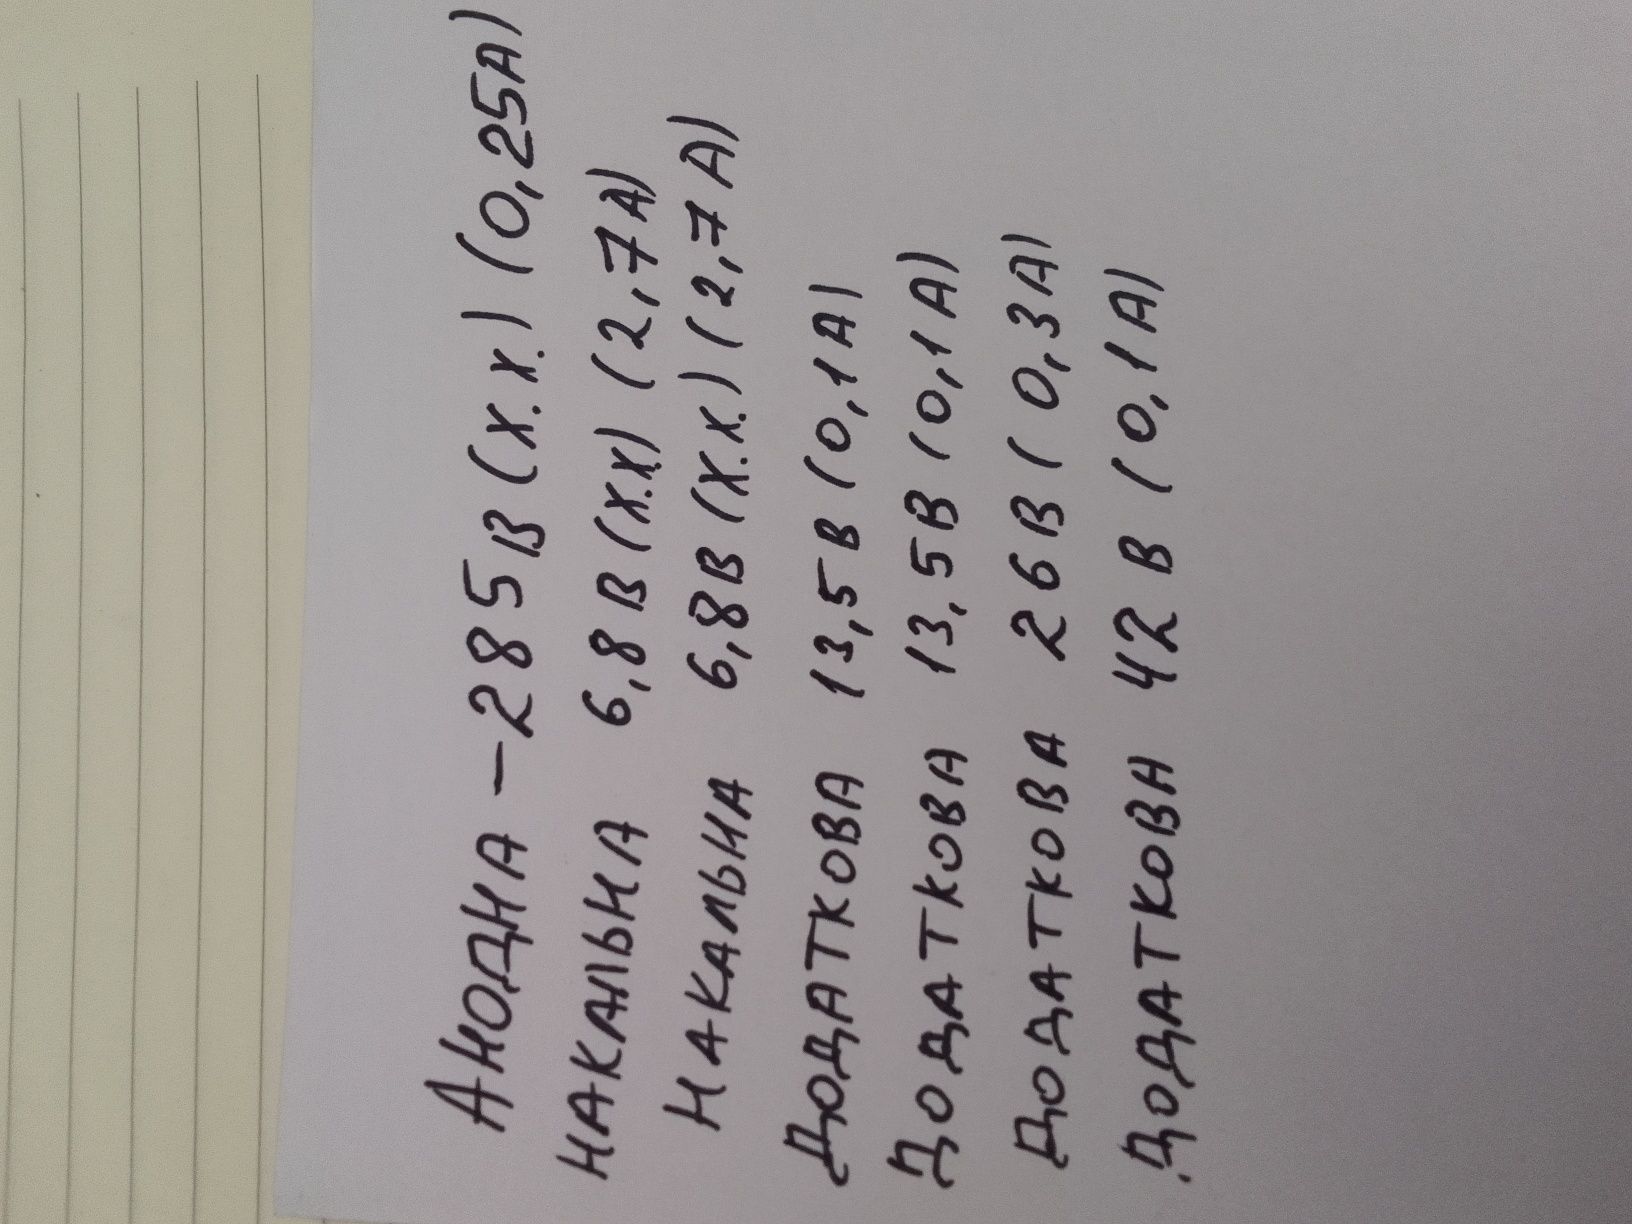 АНОДНА – 285В (Х.Х.) (0,25А)
НАКАЛЬНА 6,8В (Х.Х) (2,7А)
НАКАЛЬНА 6,8В (Х.Х.) (2,7А)
ДОДАТКОВА 13,5В (0,1А)
ДОДАТКОВА 13,5В (0,1А)
ДОДАТКОВА 26В (0,3А)
ДОДАТКОВА 42В (0,1А)